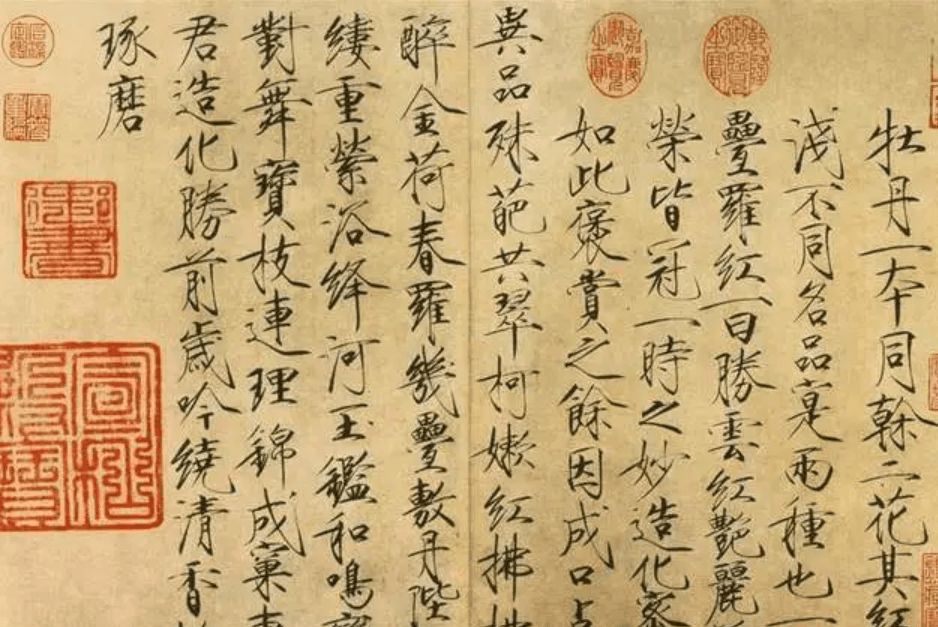 牡丹一本同榦二花其紅
淺不同名品寔兩種也一
疊羅紅一曰勝雲紅艷麗
榮皆冠一時之妙造化密
如此褒賞之餘因成口占
異品殊葩共翠柯嫩紅拂拂
醉金荷春羅幾疊敷丹陛
縷重縈浴絳河玉鑑和鳴鸞
對舞寶枝連理錦成窠東
君造化勝前歲吟繞清香
琢磨
乾隆御覽之寶
嘉慶御覽之寶
御書